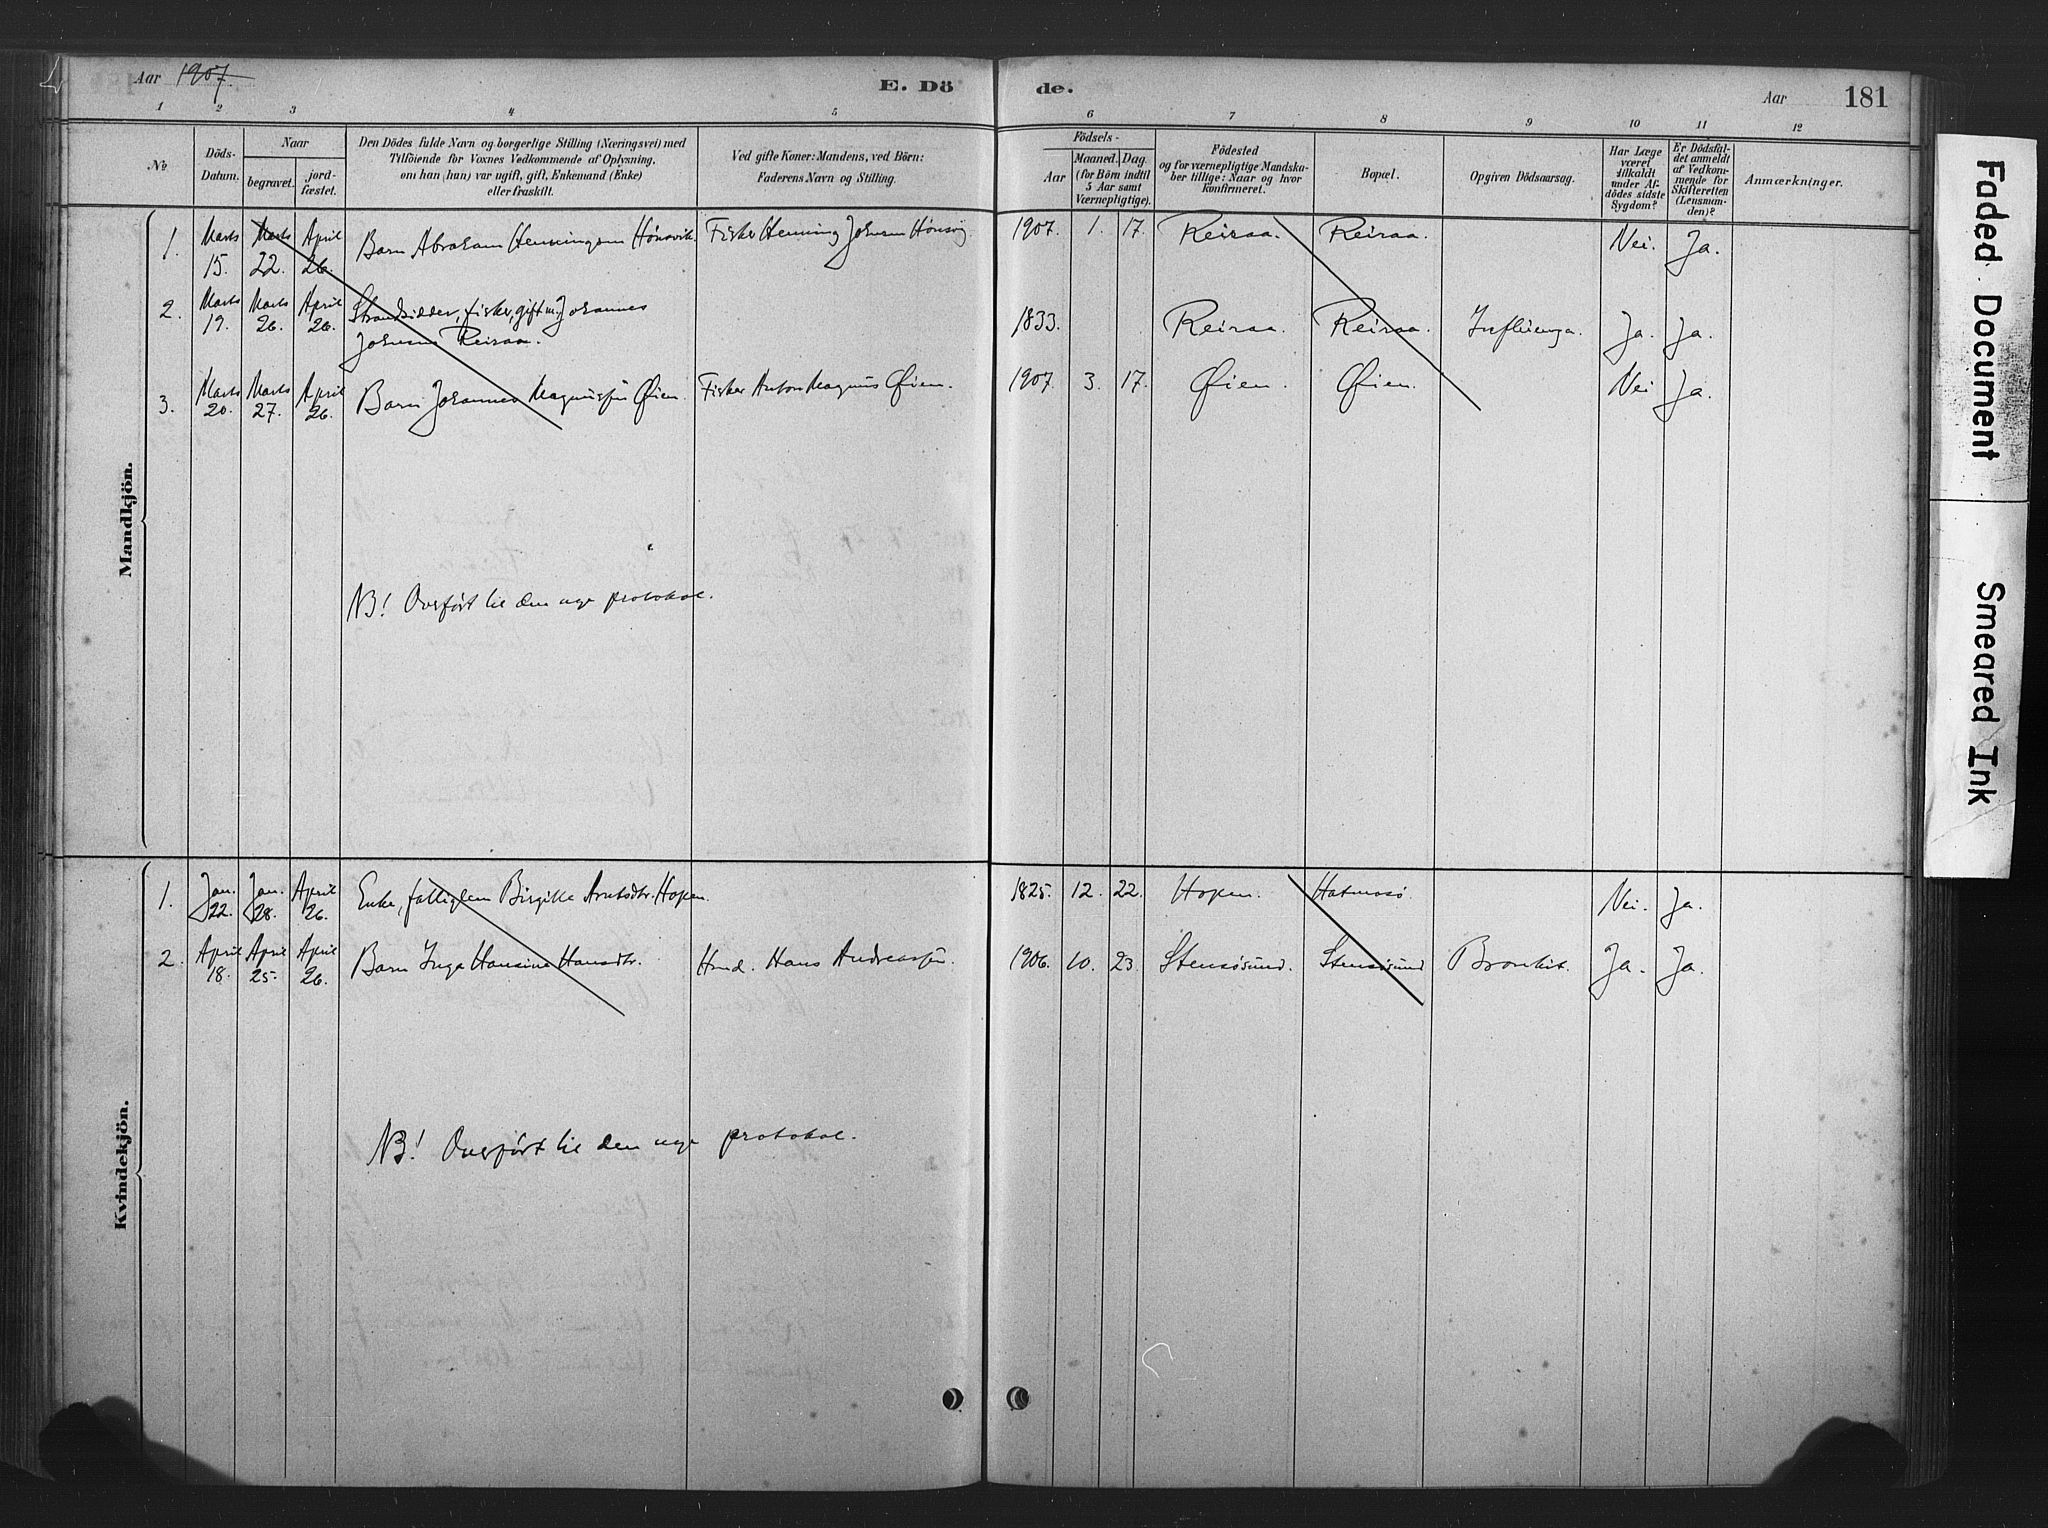 Aar 1907.
E. Dö
de.
Aar
181
1 2 3 4 5 6 7 8 9 10 11 12
No
Döds-Datum.
Naar
begravet.
jord-fæstet.
Den Dödes fulde Navn og borgerlige Stilling (Næringsvei) med
Tilföiende for Voxnes Vedkommende af Oplysning,
om han (hun) var ugift, gift, Enkemand (Enke)
eller fraskilt.
Ved gifte Koner: Mandens, ved Börn:
Faderens Navn og Stilling.
Födsels-
Aar
Maaned. Dag.
(for Börn indtil
5 Aar samt
Værnepligtige).
Födested
og for værnepligtige Mandska-
ber tillige: Naar og hvor
konfirmeret.
Bopæl.
Opgiven Dödsaarsag.
Har Læge
været
tilkaldt
under Af-
dödes sidste
Sygdom?
Er Dödsfal-
det anmeldt
af Vedkom-
mende for
Skifteretten
(Lensman-
den)?
Anmærkninger.
Mandkjön.
1. Marts 15. Marts 22. April 26. Barn Abraham Henningsen Hönsvik. Fisker Henning Johnsen Hönsvig 1907. 1. 17. Reiraa. Reiraa. Nei. Ja.
2. Marts 19. Marts 26. April 26. Strandsidder, fisker, gift m. Johannes
Johnsen Reiraa. 1833. Reiraa. Reiraa. Influenza. Ja. Ja.
3. Marts 20. Marts 27. April 26. Barn Johannes Magnussen Øien. Fisker Anton Magnus Øien. 1907. 3. 17. Øien. Øien. Nei Ja.
NB! Overført til den nye protokol.
Kvindekjön.
1. Jan. 22. Jan. 28. April 26. Enke, fattiglem Birgitte Arntsdtr. Hopen. 1825. 12. 22. Hopen. Hatmosö. Nei. Ja.
2. April 18. April 25. April 26. Barn Inga Hansine Hansdtr. Hmd. Hans Andreassen. 1906. 10. 23. Stensösund. Stensösund Bronkit. Ja. Ja.
NB! Overført til den nye protokol.
Faded Document
Smeared Ink